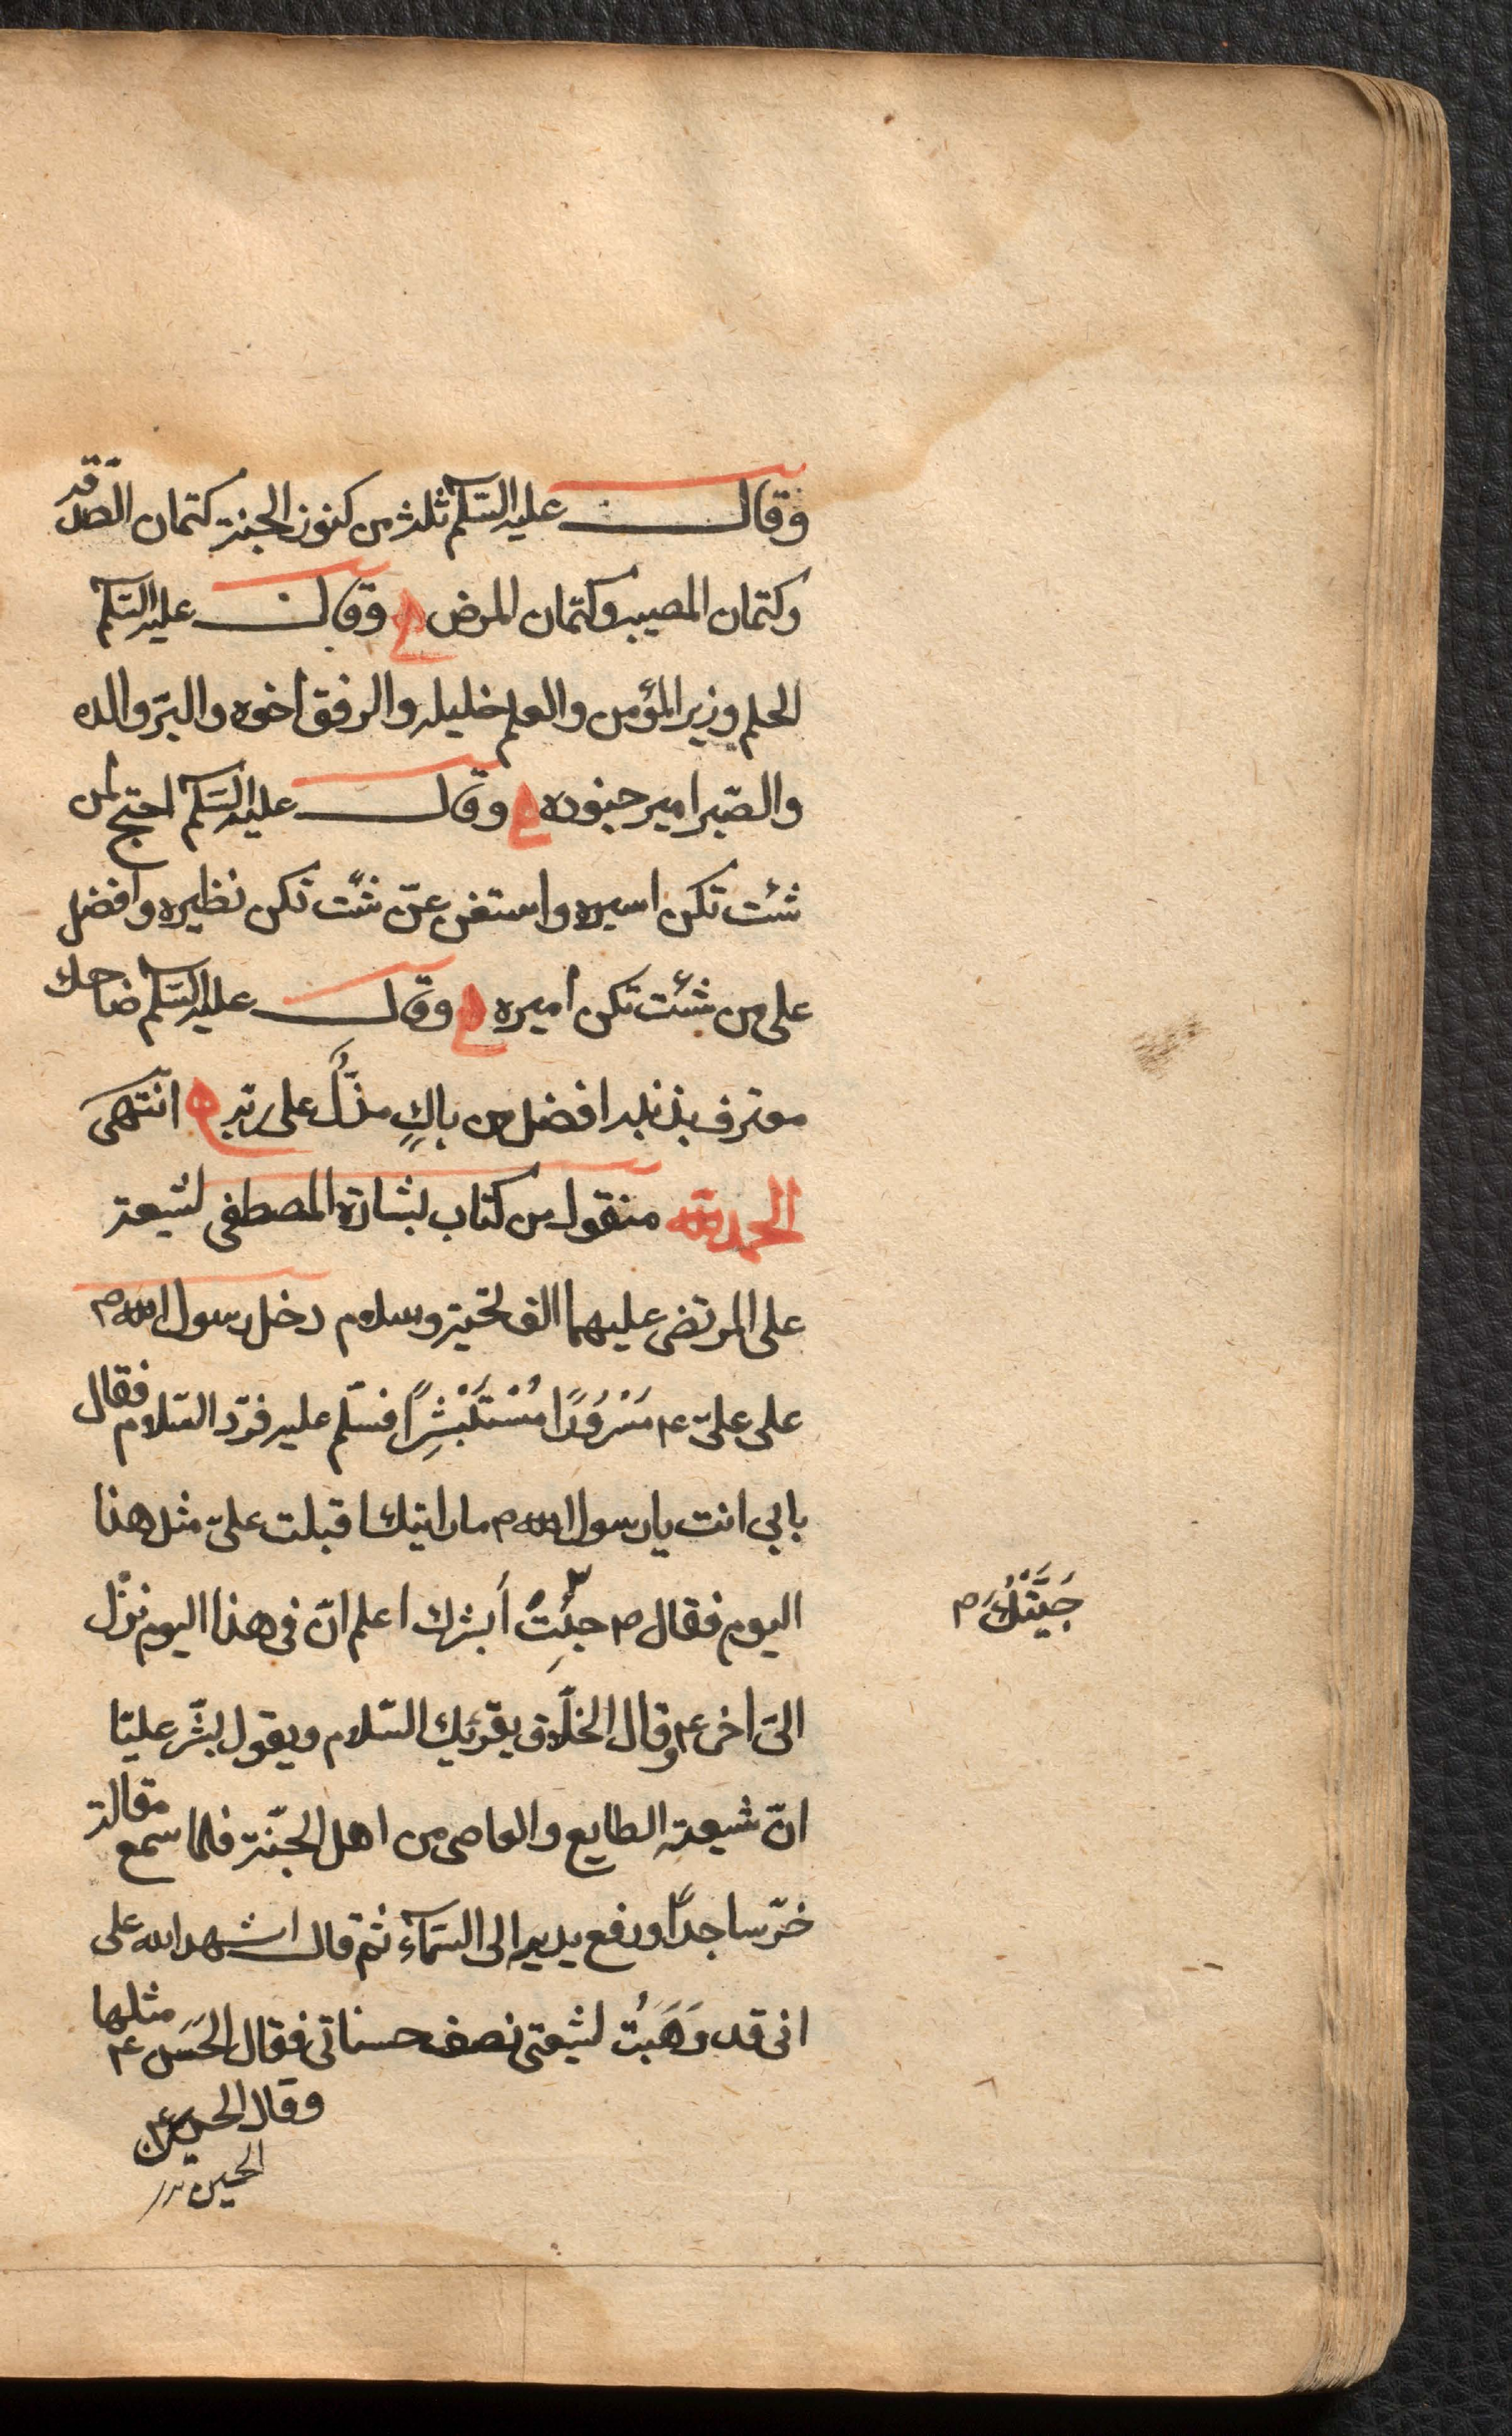 وقال عليه السلم ثلث من كنوز الجنة كتمان الصدقة
وكتمان المصيبة وكتمان المرض وقال عليه السلم
الحلم وزير المؤمن والعلم خليله والرفق اخوه والبرّ والده
والصّبر امير جنوده وقال عليه السلم احتج لمن
شئت تكن اسيره واستغن عمّن شئت تكن نظيره وافضل
على من شئت تكن اميره وقال عليه السلم ضاحك
معترف بذنبه افضل من باكٍ مذلٍّ على ربّه انتهى
الحمد لله منقول من كتاب بشارة المصطفى لشيعة
على المرتضى عليهما الف تحيّة وسلام دخل رسول الله ص
على علىّ ع مَسْرُورًا مُسْتَبْشِرًا فسلّم عليه فردّ السّلام فقال
بابي انت يا رسول الله ص ما رايتك اقبلت علىّ مثل هذا
اليوم فقال ص جئتُ اَبشرك اعلم انّ فى هذا اليوم نزل
جَيَّتُكَ م
الىّ اخى ع وقال الخلّاق يقرئك السّلام ويقول بشّر عليّا
انّ شيعته الطايع والعاصى من اهل الجنّة فلما سمع مقالة
خرّ ساجدًا ورفع يديه الى السّمآء ثم قال اشهد الله على
انى قد وَهَبتُ لشيعتى نصف حسناتى فقال الحَسن ع مثلها
وقال الحسين ع
الحسين